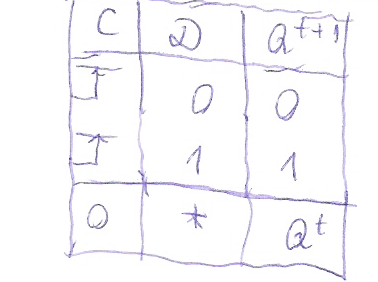 C D Q^{t+1}
0 0
1 1
0 * Q^t